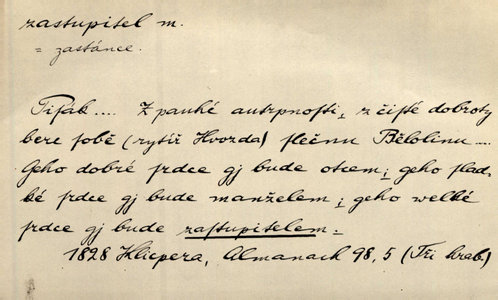 zastupitel m.
= zastánce.
Pisák .... Z pauhé autrpnosti, z čisté dobroty
bere sobě (rytíř Hvozda) slečnu Bělolinu ....
Geho dobré srdce gj bude otcem; geho slad-
ké srdce gj bude manželem; geho welké
srdce gj bude zastupitelem.
1828 Klicpera, Almanach 98, 5 (Tři hrab.)